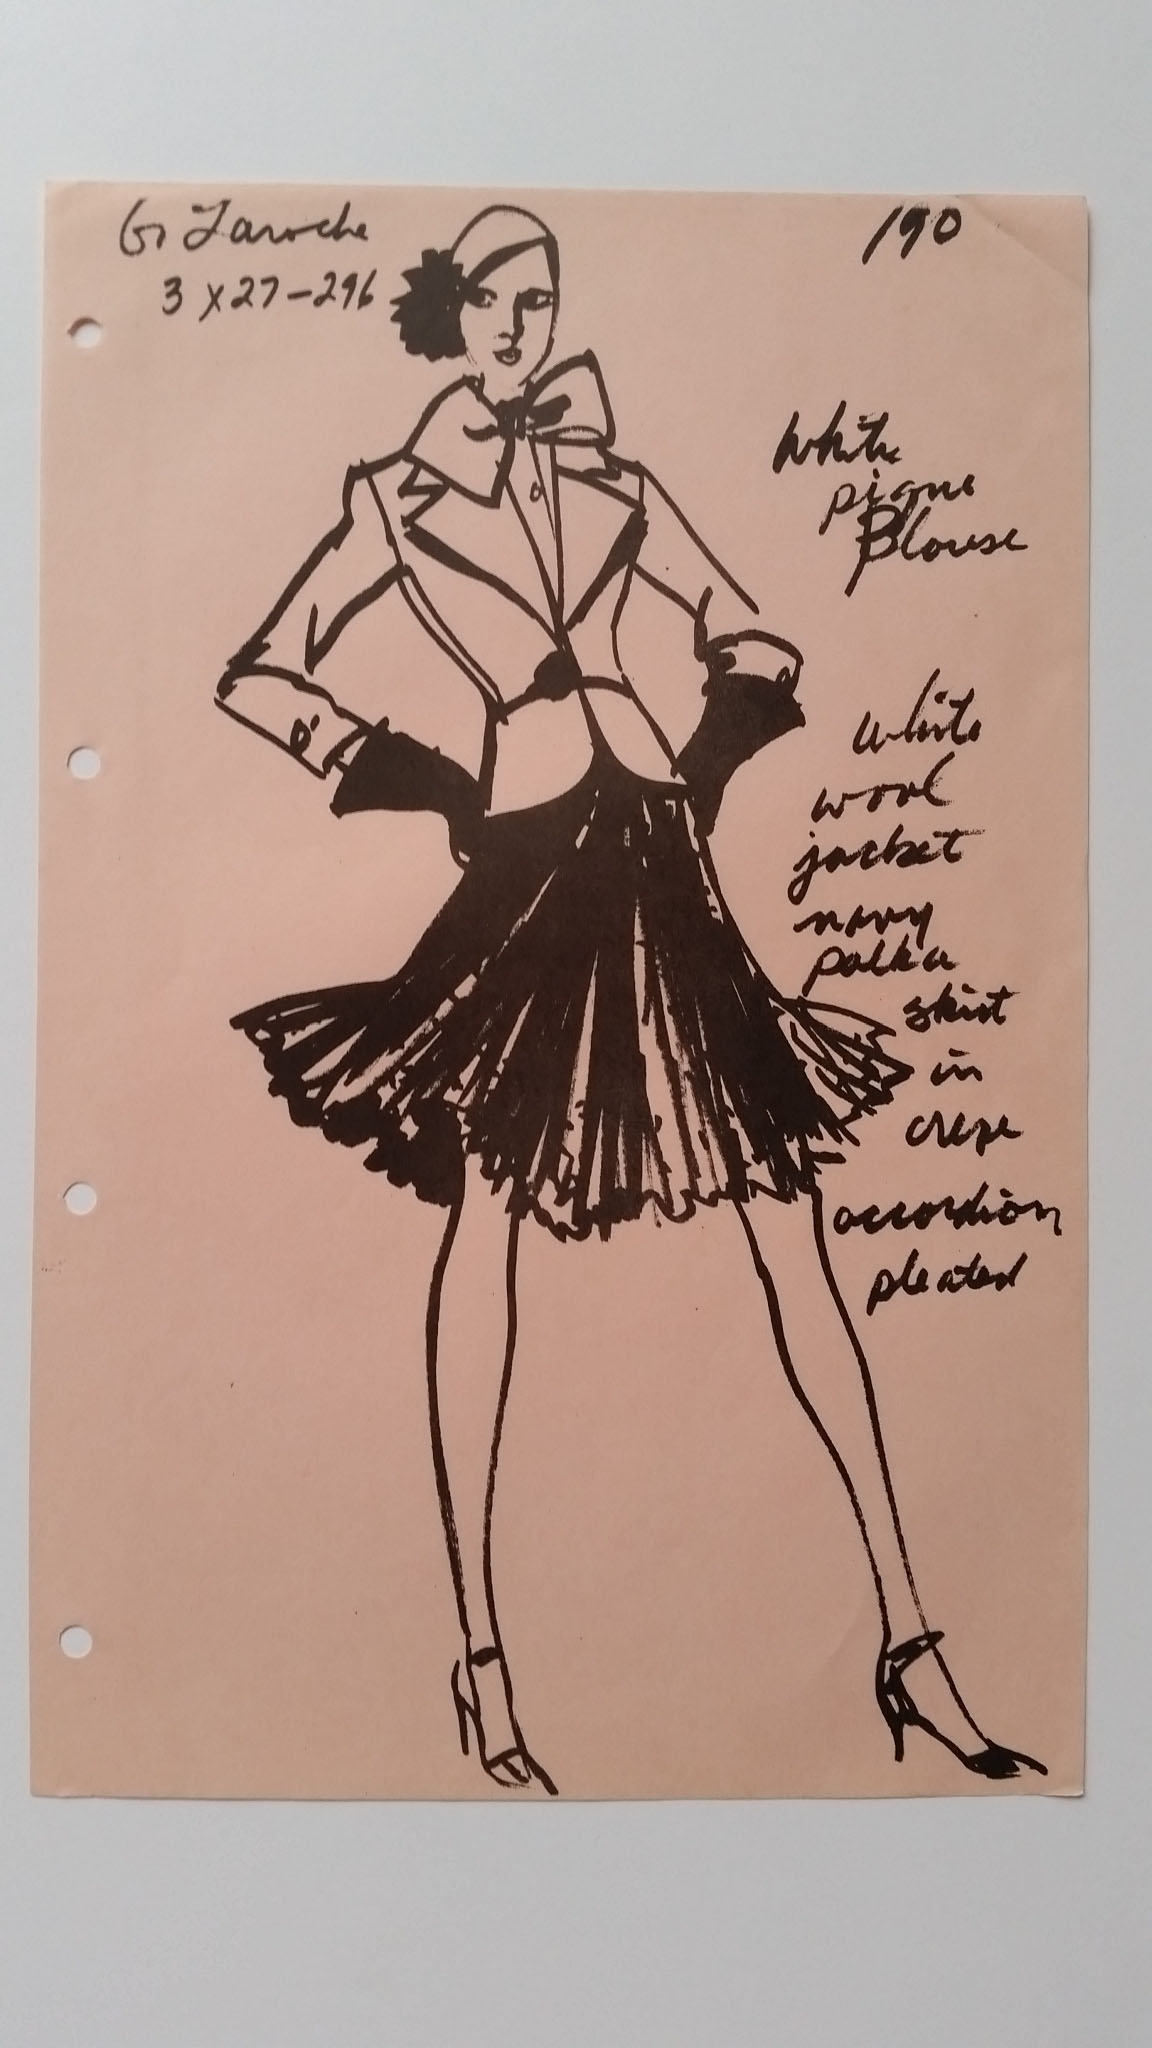 G. Laroche
3 x 27 - 296
190
White
pique
Blouse
white
wool
jacket
navy
polka
skirt
in
crepe
accordion
pleated